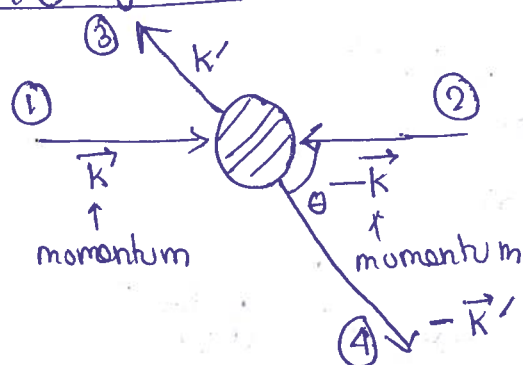 ③
k′
① ②
→k θ −→k
↑ ↑
momentum momentum
④ −→k′